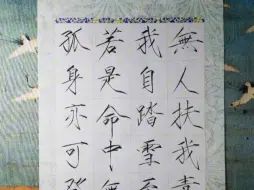 無人扶我青
我自踏雪至
若是命中無
孤身亦可登